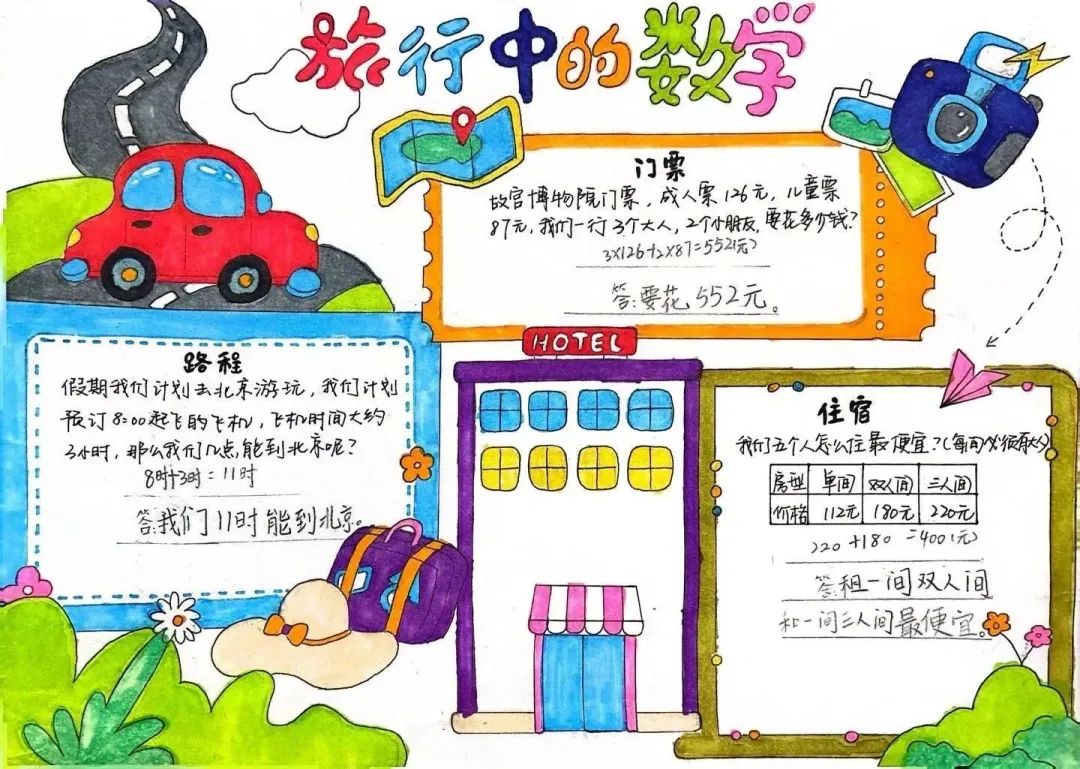 旅行中的数学
门票
故宫博物院门票，成人票126元，儿童票
87元，我们一行3个大人，2个小朋友，要花多少钱？
3×126+2×87=552(元)
答：要花552元。
HOTEL
路程
假期我们计划去北京游玩，我们计划
预订8:00起飞的飞机，飞机时间大约
3小时，那么我们几点能到北京呢？
8时+3时=11时
答：我们11时能到北京。
住宿
我们五个人怎么住最便宜？(每间必须有大人)
房型 单间 双人间 三人间
价格 112元 180元 220元
220+180=400(元)
答：租一间双人间
和一间三人间最便宜。